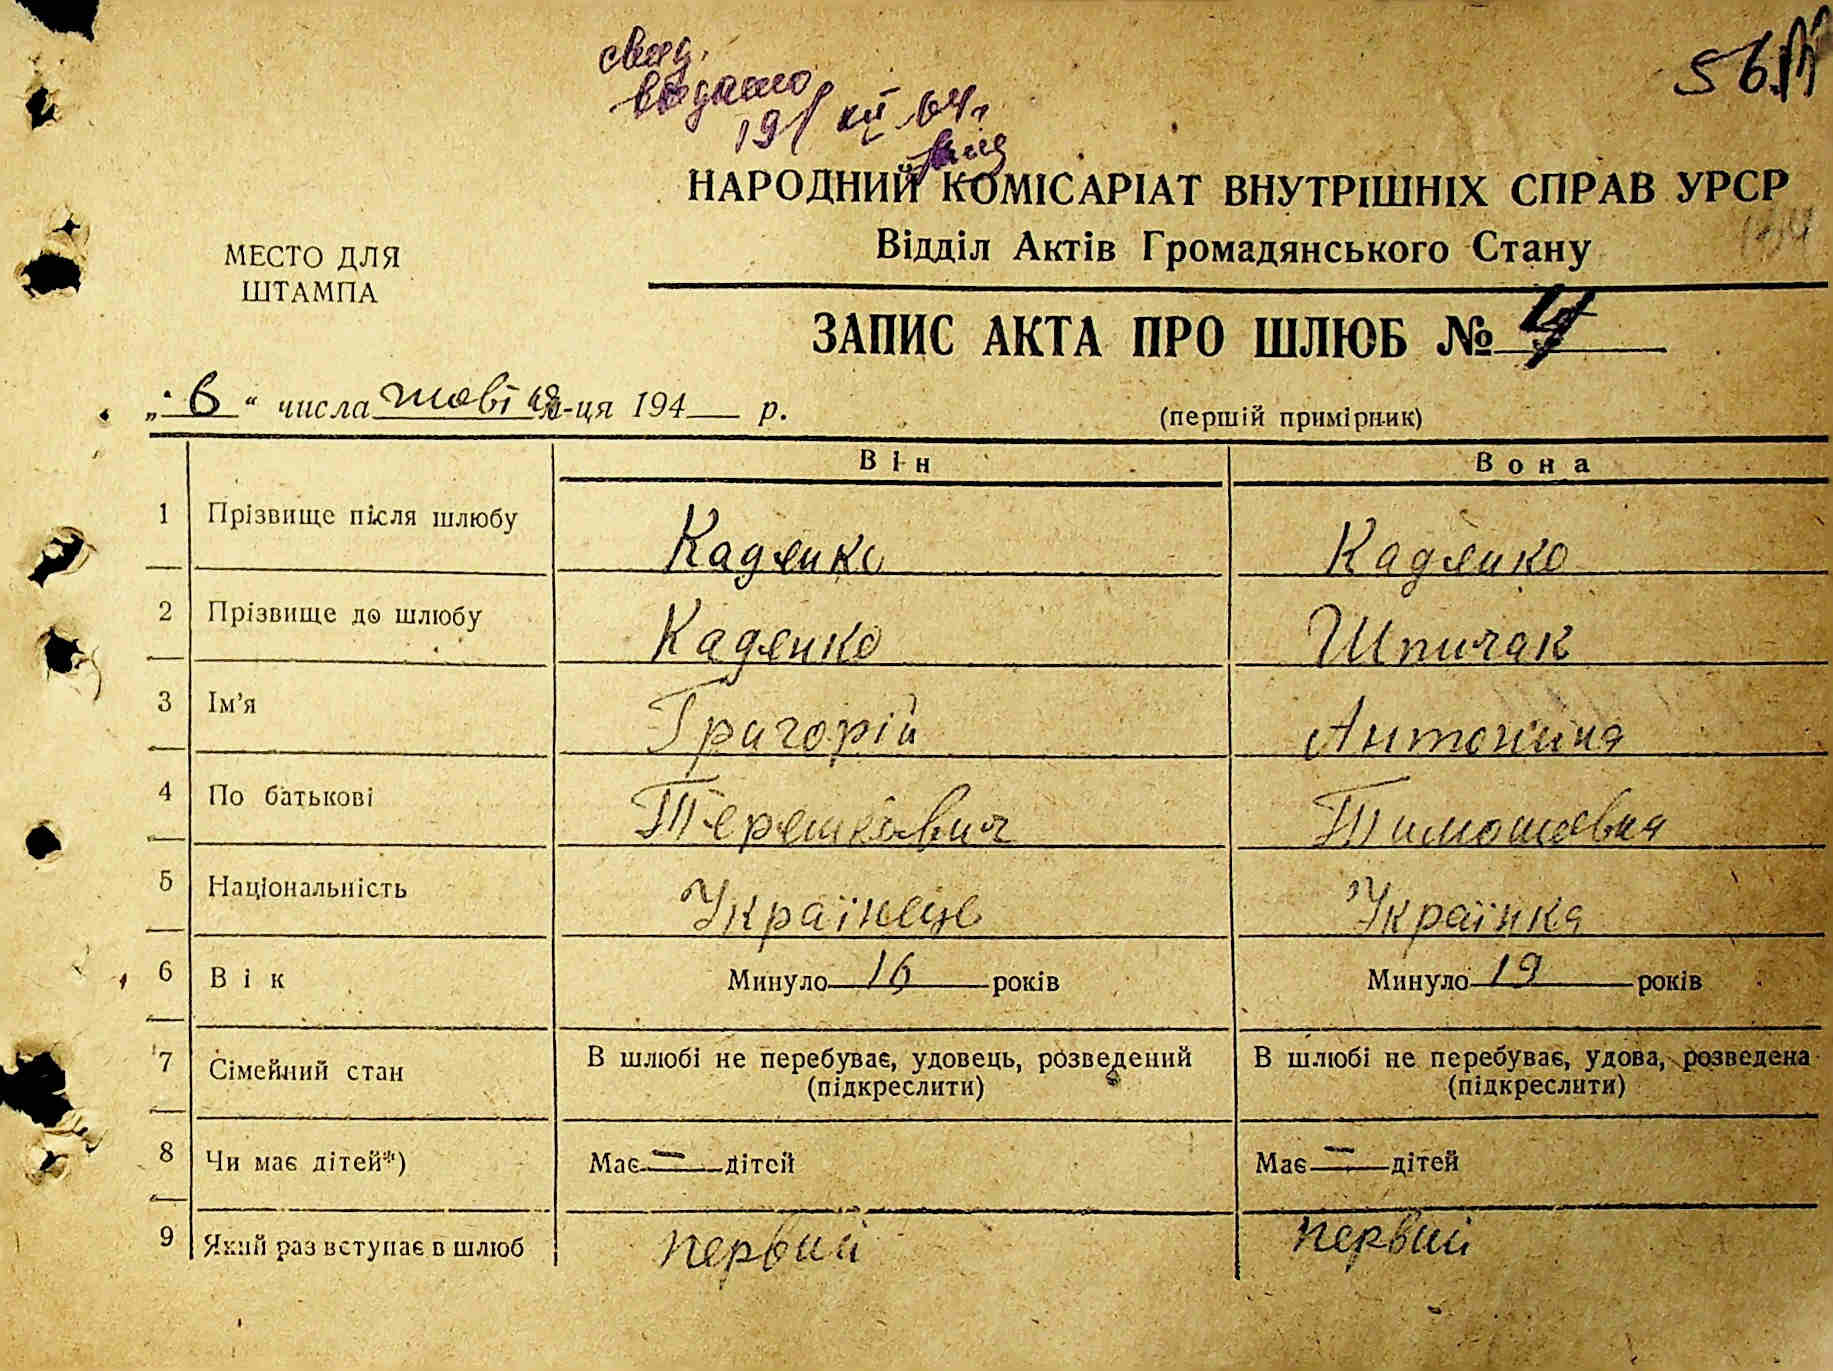 свид.
видано
19/XII 64г.
56
НАРОДНИЙ КОМІСАРІАТ ВНУТРІШНІХ СПРАВ УРСР
Відділ Актів Громадянського Стану
МЕСТО ДЛЯ
ШТАМПА
ЗАПИС АКТА ПРО ШЛЮБ № 4
„6“ числа жовтня м-ця 194 р.
(першій примірник)
Він Вона
1 Прізвище після шлюбу Кадянко Кадянко
2 Прізвище до шлюбу Кадянко Шпичак
3 Ім’я Григорій Антонина
4 По батькові Терешкович Тимошовна
5 Національність Українець Українка
6 Вік Минуло 16 років Минуло 19 років
7 Сімейний стан В шлюбі не перебуває, удовець, розведений В шлюбі не перебуває, удова, розведена
(підкреслити) (підкреслити)
8 Чи має дітей*) Має — дітей Має — дітей
9 Який раз вступає в шлюб первий первий